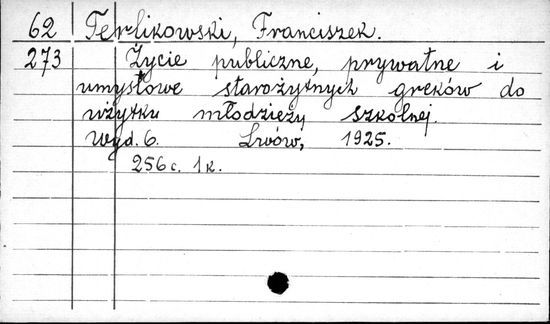 62 Terlikowski, Franciszek.
273 Życie publiczne, prywatne i
umysłowe starożytnych greków do
użytku młodzieży szkolnej.
Wyd. 6. Lwów, 1925.
256 c. 1 k.